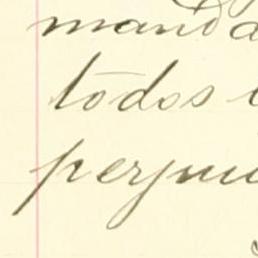 mand
todos
perju